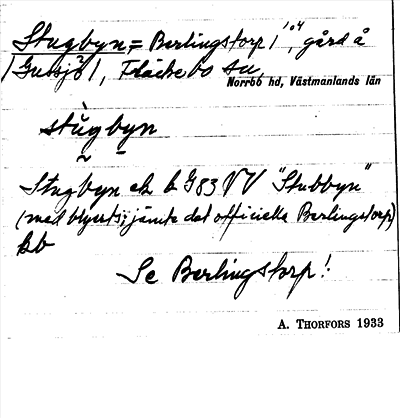 Stugbyn, = Berlingstorp 1¹⁰⁴, gård å
|Gussjö|, Fläckebo sn,
Norrbo hd, Västmanlands län
stùgbyn
Stugbyn ek b G83 VV "Stubbyn"
(med blyerts; jämte det officiella Berlingstorp)
bb
Se Berlingstorp!
A. THORFORS 1933